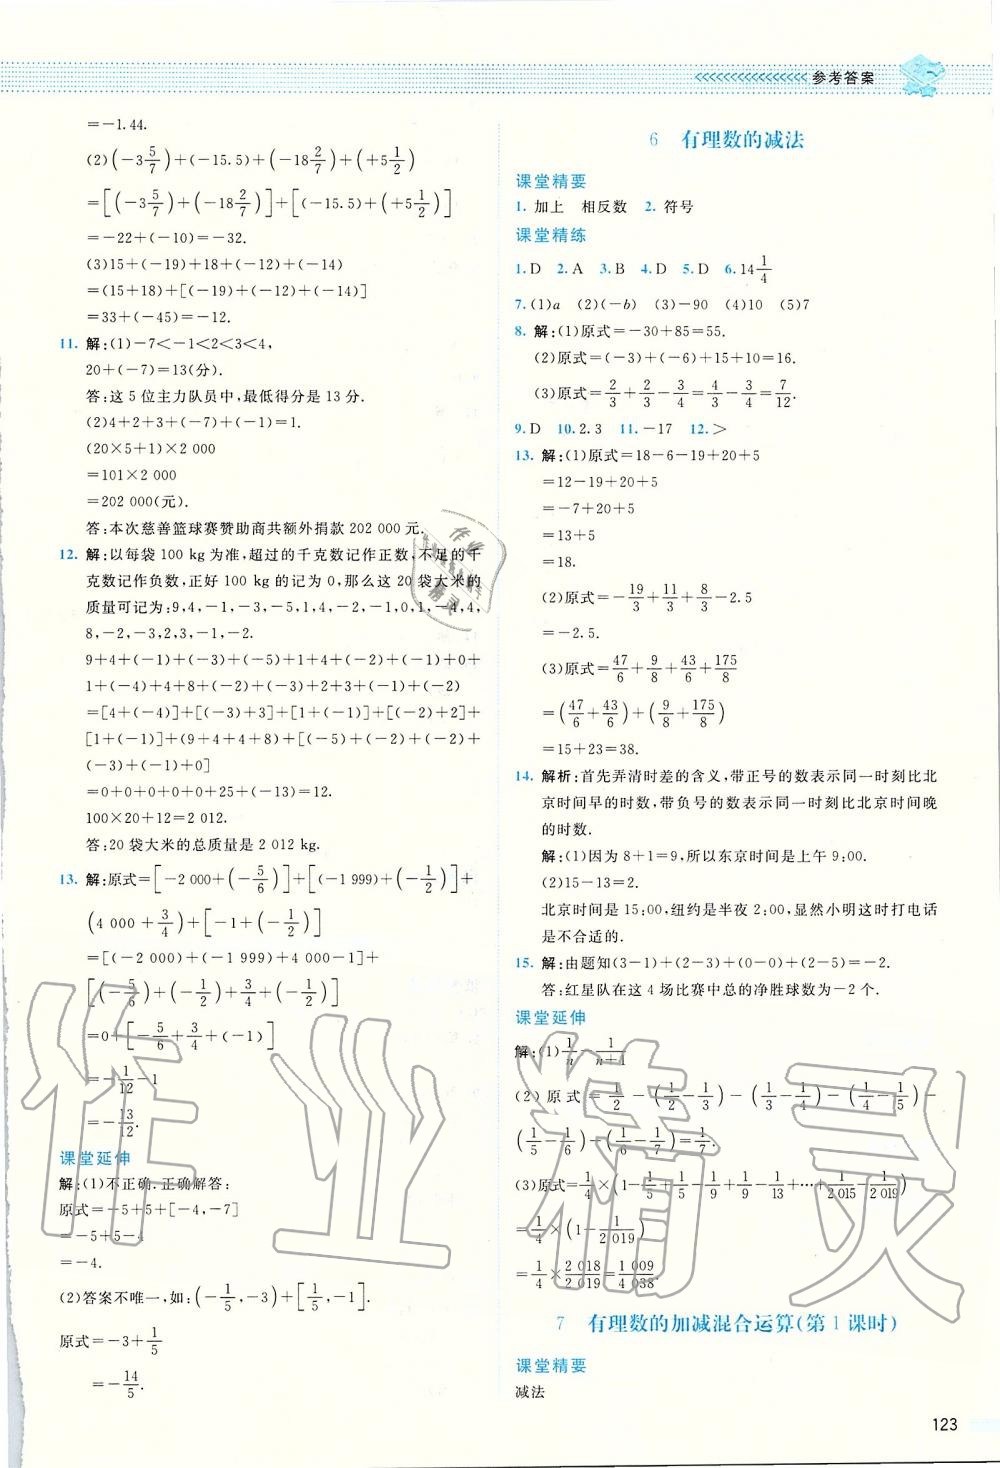 参考答案
=-1.44.
(2)(-3 5/7)+(-15.5)+(-18 2/7)+(+5 1/2)
=[(-3 5/7)+(-18 2/7)]+[(-15.5)+(+5 1/2)]
=-22+(-10)=-32.
(3)15+(-19)+18+(-12)+(-14)
=(15+18)+[(-19)+(-12)+(-14)]
=33+(-45)=-12.
11. 解:(1)-7<-1<2<3<4,
20+(-7)=13(分).
答:这5位主力队员中,最低得分是13分.
(2)4+2+3+(-7)+(-1)=1.
(20×5+1)×2 000
=101×2 000
=202 000(元).
答:本次慈善篮球赛赞助商共额外捐款202 000元.
12. 解:以每袋100 kg为准,超过的千克数记作正数,不足的千
克数记作负数,正好100 kg的记为0,那么这20袋大米的
质量可记为:9,4,-1,-3,-5,1,4,-2,-1,0,1,-4,4,
8,-2,-3,2,3,-1,-2.
9+4+(-1)+(-3)+(-5)+1+4+(-2)+(-1)+0+
1+(-4)+4+8+(-2)+(-3)+2+3+(-1)+(-2)
=[4+(-4)]+[(-3)+3]+[1+(-1)]+[(-2)+2]+
[1+(-1)]+(9+4+4+8)+[(-5)+(-2)+(-2)+
(-3)+(-1)+0]
=0+0+0+0+0+25+(-13)=12.
100×20+12=2 012.
答:20袋大米的总质量是2 012 kg.
13. 解:原式=[-2 000+(-5/6)]+[(-1 999)+(-1/2)]+
(4 000+3/4)+[-1+(-1/2)]
=[(-2 000)+(-1 999)+4 000-1]+
[(-5/6)+(-1/2)+3/4+(-1/2)]
=0+[-5/6+3/4+(-1)]
=-1/12-1
=-13/12.
课堂延伸
解:(1)不正确.正确解答:
原式=-5+5+[-4,-7]
=-5+5-4
=-4.
(2)答案不唯一,如:(-1/5,-3)+[1/5,-1].
原式=-3+1/5
=-14/5.
6 有理数的减法
课堂精要
1. 加上 相反数 2. 符号
课堂精练
1. D 2. A 3. B 4. D 5. D 6. 14 1/4
7. (1)a (2)(-b) (3)-90 (4)10 (5)7
8. 解:(1)原式=-30+85=55.
(2)原式=(-3)+(-6)+15+10=16.
(3)原式=2/3+2/3-3/4=4/3-3/4=7/12.
9. D 10. 2.3 11. -17 12. >
13. 解:(1)原式=18-6-19+20+5
=12-19+20+5
=-7+20+5
=13+5
=18.
(2)原式=-19/3+11/3+8/3-2.5
=-2.5.
(3)原式=47/6+9/8+43/6+175/8
=(47/6+43/6)+(9/8+175/8)
=15+23=38.
14. 解析:首先弄清时差的含义,带正号的数表示同一时刻比北
京时间早的时数,带负号的数表示同一时刻比北京时间晚
的时数.
解:(1)因为8+1=9,所以东京时间是上午9:00.
(2)15-13=2.
北京时间是15:00,纽约是半夜2:00,显然小明这时打电话
是不合适的.
15. 解:由题知(3-1)+(2-3)+(0-0)+(2-5)=-2.
答:红星队在这4场比赛中总的净胜球数为-2个.
课堂延伸
解:(1)1/n-1/(n+1)
(2)原式=1/2-(1/2-1/3)-(1/3-1/4)-(1/4-1/5)-
(1/5-1/6)-(1/6-1/7)=1/7.
(3)原式=1/4×(1-1/5+1/5-1/9+1/9-1/13+…+1/2 015-1/2 019)
=1/4×(1-1/2 019)
=1/4×2 018/2 019=1 009/4 038.
7 有理数的加减混合运算(第1课时)
课堂精要
减法
123
作业精灵